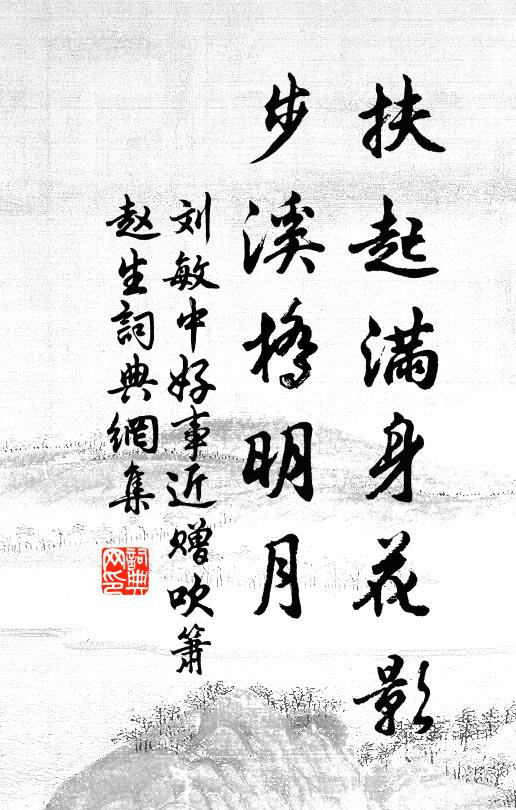 扶起满身花影
步溪橋明月
刘敏中好事近赠吹簫
赵生詞典網集
詞典
网印